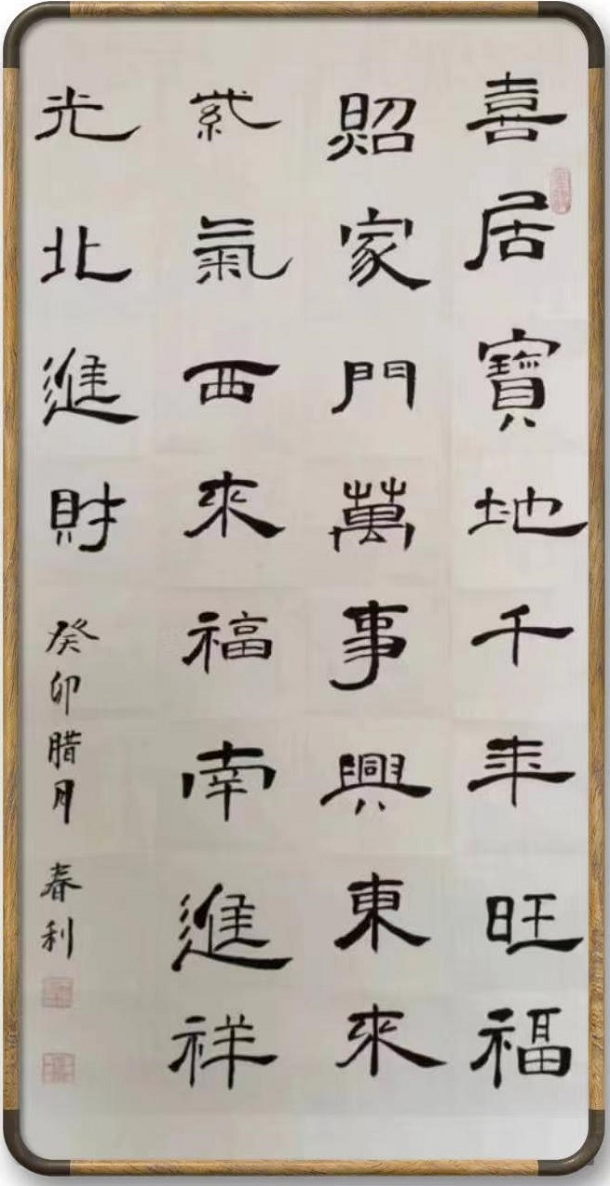 喜居寶地千年旺福
照家門萬事興東來
紫氣西來福南進祥
光北進財
癸卯腊月 春利